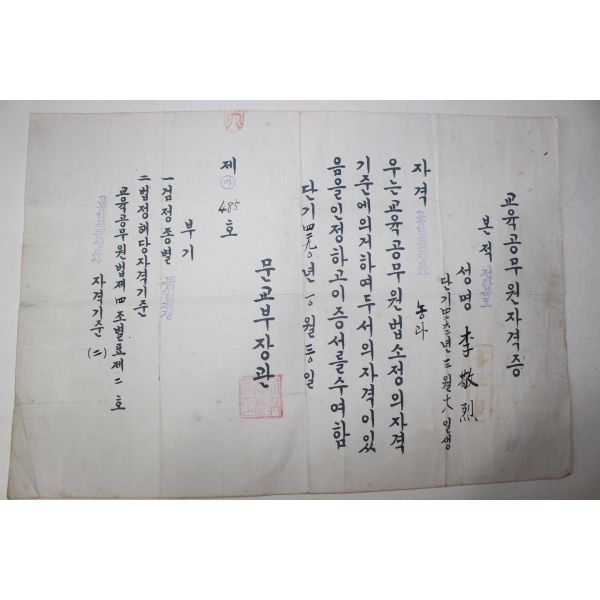 교육공무원자격증
본적 전라북도
성명 李敬烈
단기四二六三年三월十八일생
자격 농과
우는교육공무원법소정의자격
기준에의거하여두서의자격이있
음을인정하고이증서를수여함
단기四二九〇년 월 일
문교부장관
제 마 485 호
부기
一 검정종별
二 법정해당자격기준
교육공무원법제四조별표제二호
자격기준 (二)